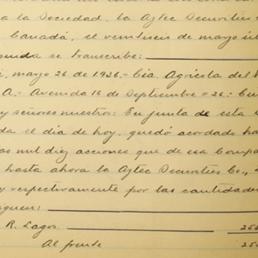 a la Sociedad, la Aztec Securities
Canadá, el veintiuno de mayo
se transcribe:
mayo 26 de 1926.- Cía. Agrícola del
A.- Avenida 16 de Septiembre #26.-
y señores nuestros: En junta de esta
da el día de hoy, quedó acordado
as mil diez acciones que de esa
hasta ahora la Aztec Securities Co.,
y respectivamente por las cantidades
siguen:
R. Lagos
Al frente